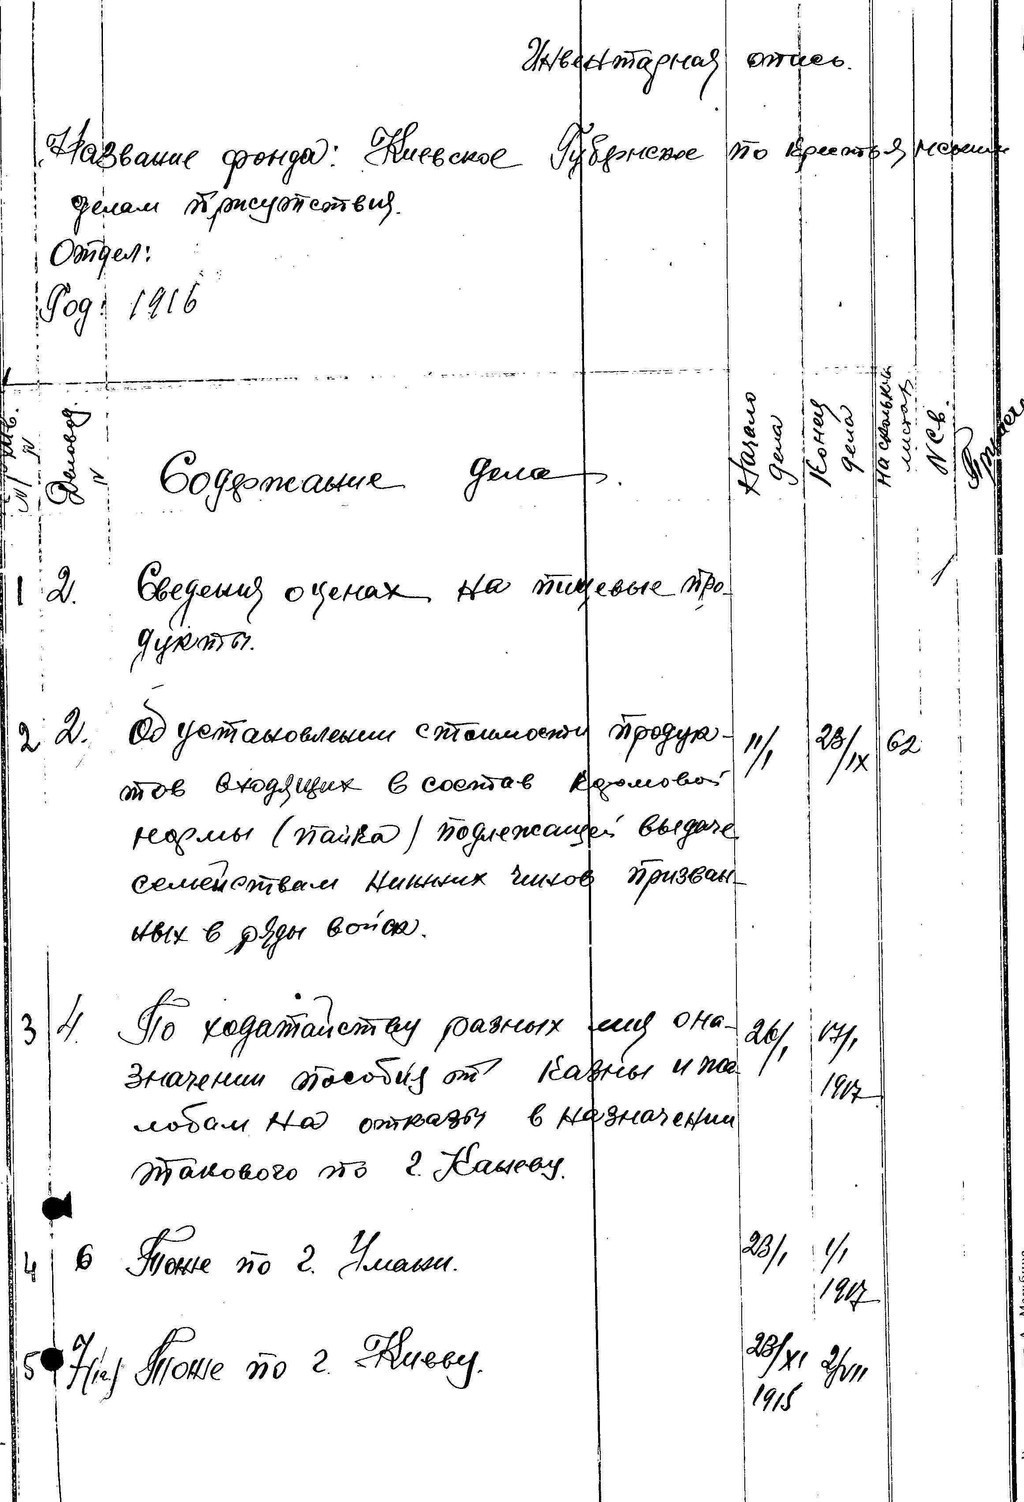 Инвентарная опись.
Название фонда: Киевское Губернское по крестьянским
делам присутствия.
Отдел:
Год: 1916
Деловод. №
Содержание дела.
Начало дела
Конец дела
На скольких листах
№ св.
1 2. Сведения о ценах на пищевые про-
дукты.
2 2. Об установлении стоимости продук- 11/I 23/IX 62
тов входящих в состав кормовой
нормы (пайка) подлежащей выдаче
семействам нижних чинов призван-
ных в ряды войск.
3 4. По ходатайству разных лиц о на- 26/I 17/I
значении пособия от казны и жа- 1917
лобам на отказы в назначении
такового по г. Каневу.
4 6 Тоже по г. Умани. 23/I 1/I
1917
5 7(1а) Тоже по г. Киеву. 23/XI 2/VII
1915